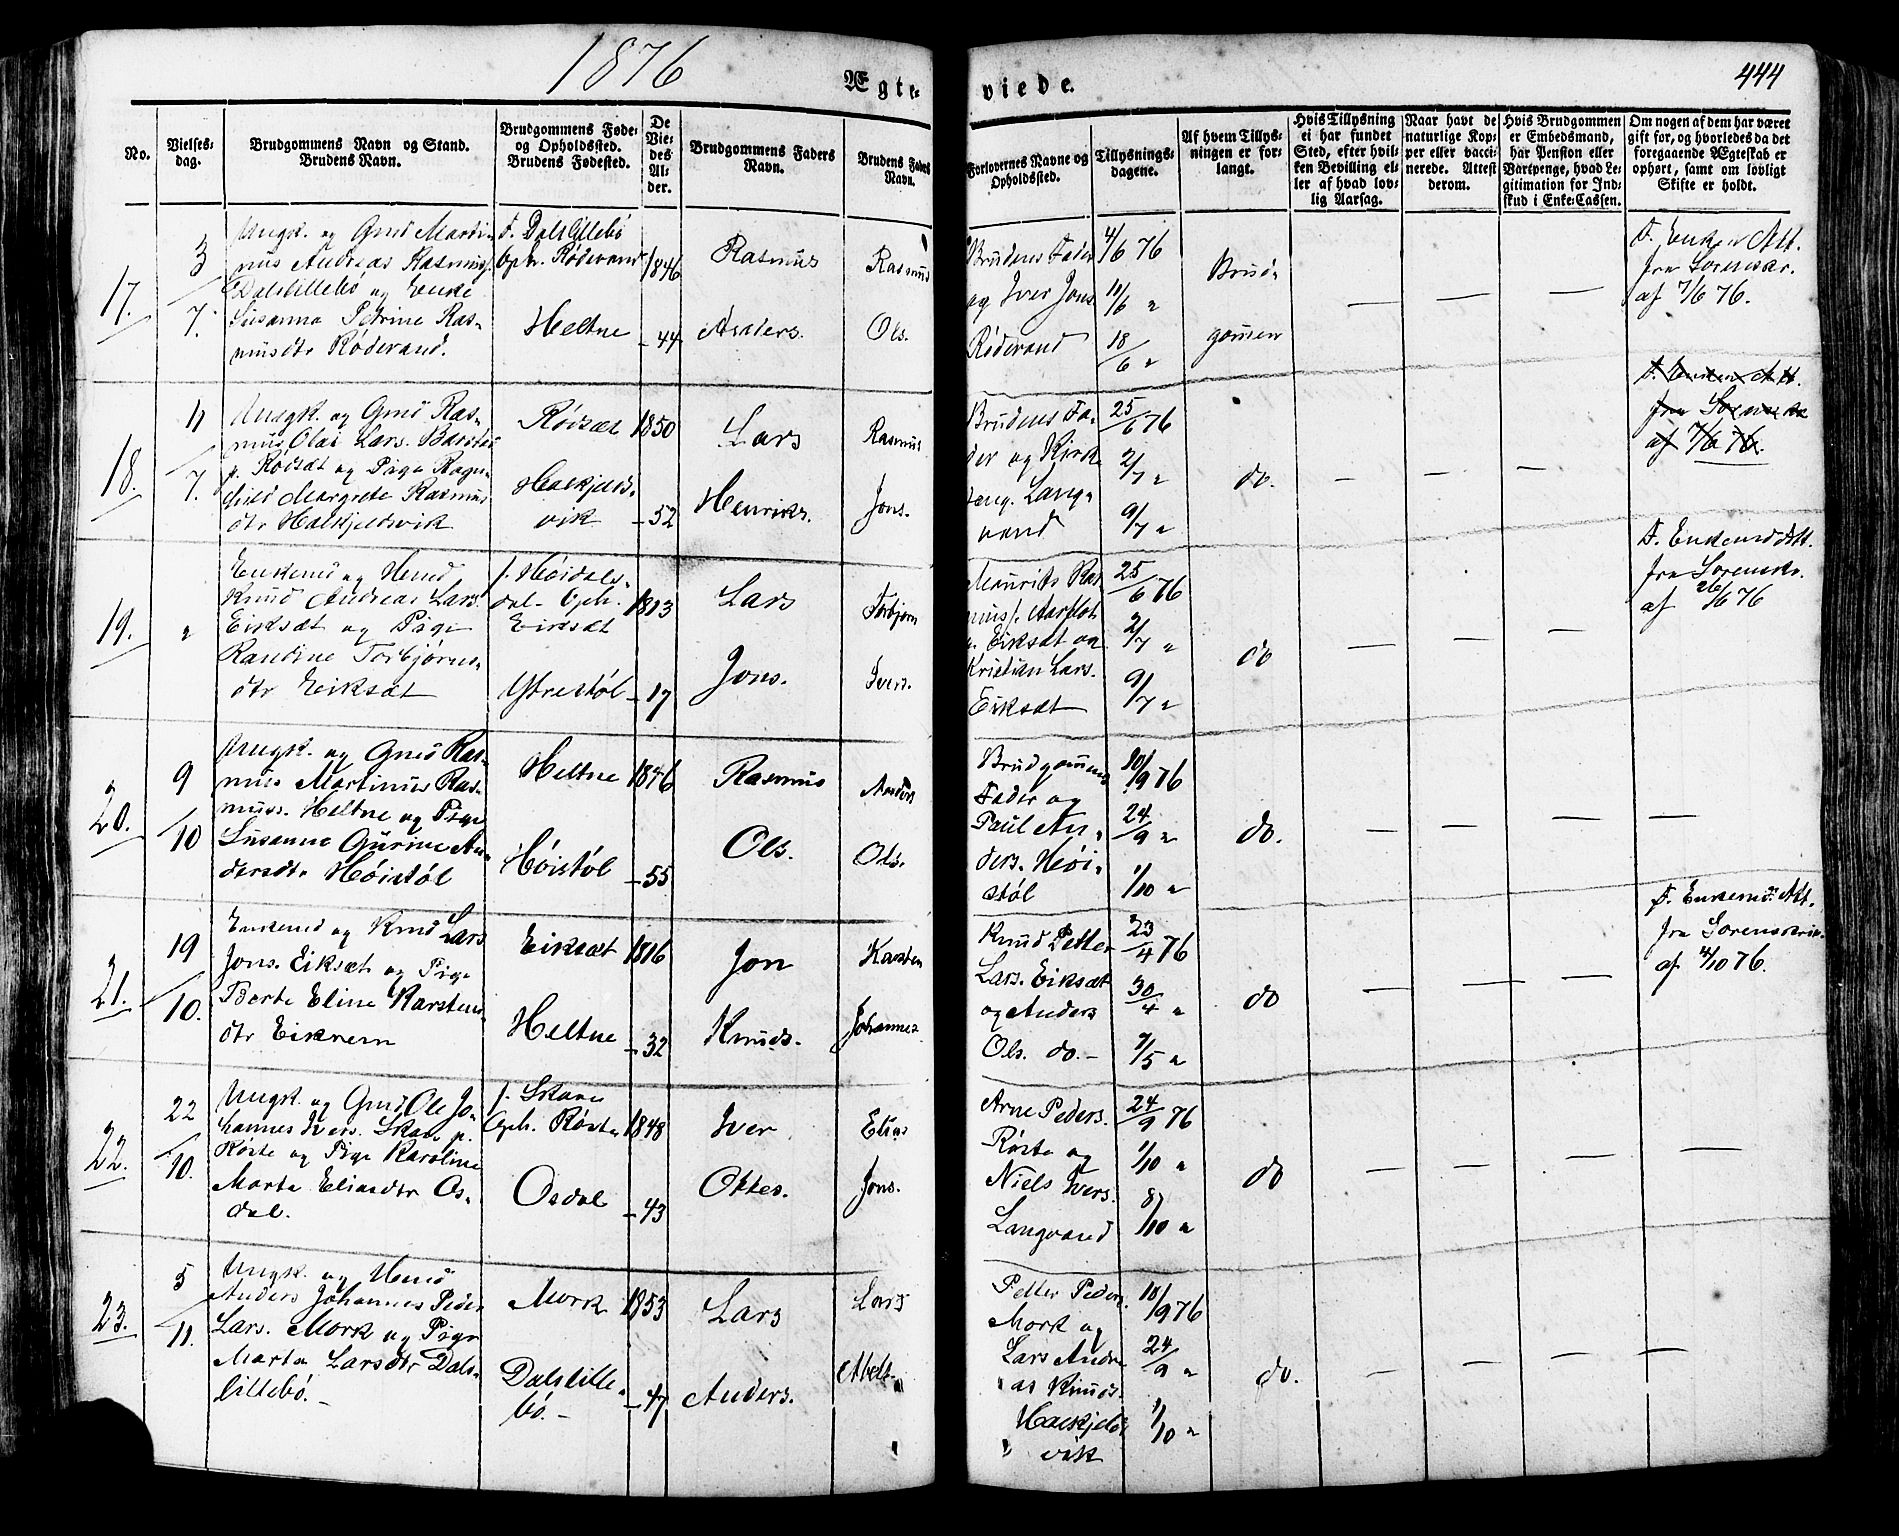 1876
Ægte-
viede.
444
No.
Vielses-
dag.
Brudgommens Navn og Stand.
Brudens Navn.
Brudgommens Føde-
og Opholdssted.
Brudens Fødested.
De
Vie-
des
Al-
der.
Brudgommens Faders
Navn.
Brudens Faders
Navn.
Forlovernes Navne og
Opholdssted.
Tillysnings-
dagene.
Af hvem Tillys-
ningen er for-
langt.
Hvis Tillysning
ei har fundet
Sted, efter hvil-
ken Bevilling el-
ler af hvad lov-
lig Aarsag.
Naar havt de
naturlige Kop-
per eller vacci-
nerede. Attest
derom.
Hvis Brudgommen
er Embedsmand,
har Pension eller
Vartpenge, hvad Le-
gitimation for Ind-
skud i Enke-Cassen.
Om nogen af dem har været
gift før, og hvorledes da det
foregaaende Ægteskab er
ophørt, samt om lovligt
Skifte er holdt.
17.
3/7.
Ungk. og Gmd Marti-
nus Andreas Rasmus.
Dalslillebø og Enke
Susanna Petrine Ras-
musdtr Røderand.
f. Dalslillebø
Oph. Røderand
Heltne
1846
- 44
Rasmus
Anders.
Rasmus
Ols.
Brudens Fader
og Iver Jons.
Røderand
4/6 76
11/6 "
18/6 "
Brud-
gomen
— — —
F. Enken Att.
fra Sorenskr.
af 7/6 76.
18.
11/7.
Ungk. og Gmd Ras-
mus Olai Lars. Barstad
p. Røisæt og Pige Ragn-
hild Margrete Rasmus
dtr Halkjelsvik
Røisæt
Halkjels-
vik
1850
- 52
Lars
Henriks.
Rasmus
Jons.
Brudens Fa-
der og Kirke
sang. Lang-
vand
25/6 76
2/7 "
9/7 "
do.
— — —
F. Enken Att.
fra Sorenskr
af 7/6 76.
19.
"
Enkemd og Huusmd
Knud Andreas Lars.
Eiksæt og Pige
Randine Torbjørns-
dtr Eiksæt
f. Høidals-
dal. Oph.
Eiksæt
Ytrestøl
1813
- 17
Lars
Jons.
Torbjørn
Ivers.
Maurits Ras
mus. Aarflot
p. Eiksæt og
Kristian Lars.
Eiksæt
25/6 76
2/7 "
9/7 "
do
— — —
F. Enkemd Att.
fra Sorenskr.
af 26/6 76
20.
9/10
Ungk. og Gmd Ras-
mus Martinus Ras-
muss. Heltne og Pige
Susanne Gurine An-
dersdtr Høistøl
Heltne
Høistøl
1846
- 55
Rasmus
Ols.
Anders
Ols.
Brudgommens
Fader og
Paul An-
ders. Høi-
støl
10/9 76
24/9 "
1/10 "
do.
— — — —
21.
19/10.
Enkemd og Knud Lars
Jons. Eiksæt og Pige
Berte Eline Karstens
dtr Eikrem
Eiksæt
Heltne
1816
- 32
Jon
Knuds.
Karsten
Johannes.
Knud Petter
Lars. Eiksæt
og Anders
Ols. do. -
23/4 76
30/4 "
7/5 "
do
— — —
F. Enkemd. Att.
fra Sorenskriv.
af 4/10 76.
22.
22/10.
Ungk. og Gmd Ole Jo-
hannes Ivers. Skare p.
Røste og Pige Karoline
Marta Eliasdtr Os-
dal.
f. Skare
Oph. Røste
Osdal
1848
- 43
Iver
Ottes.
Elias
Jons.
Arne Peders.
Røste og
Niels Ivers.
Langvand
24/9 76
1/10 "
8/10 "
do
— — — —
23.
5/11.
Ungk. og Huusmd
Anders Johannes Peder
Lars. Mork og Pige
Marta Larsdtr Dals-
lillebø. -
Mork
Dalslille-
bø. -
1853
- 47
Lars
Anders.
Lars
Abels.
Petter Peders.
Mork og
Lars Andre-
as Knuds.
Halkjels-
vik
10/9 76
24/9 "
1/10 "
do.
— — — —